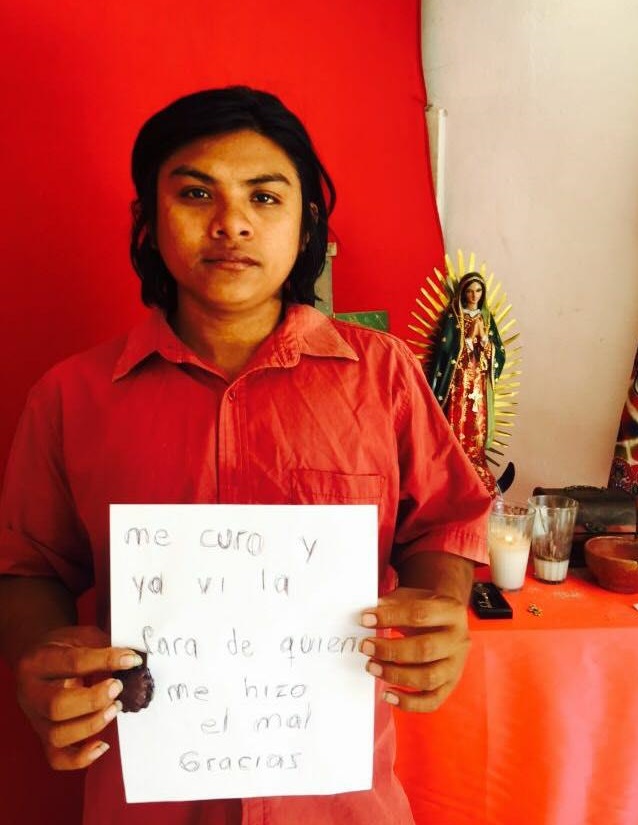 me curo y
ya vi la
Cara de quien
me hizo
el mal
Gracias